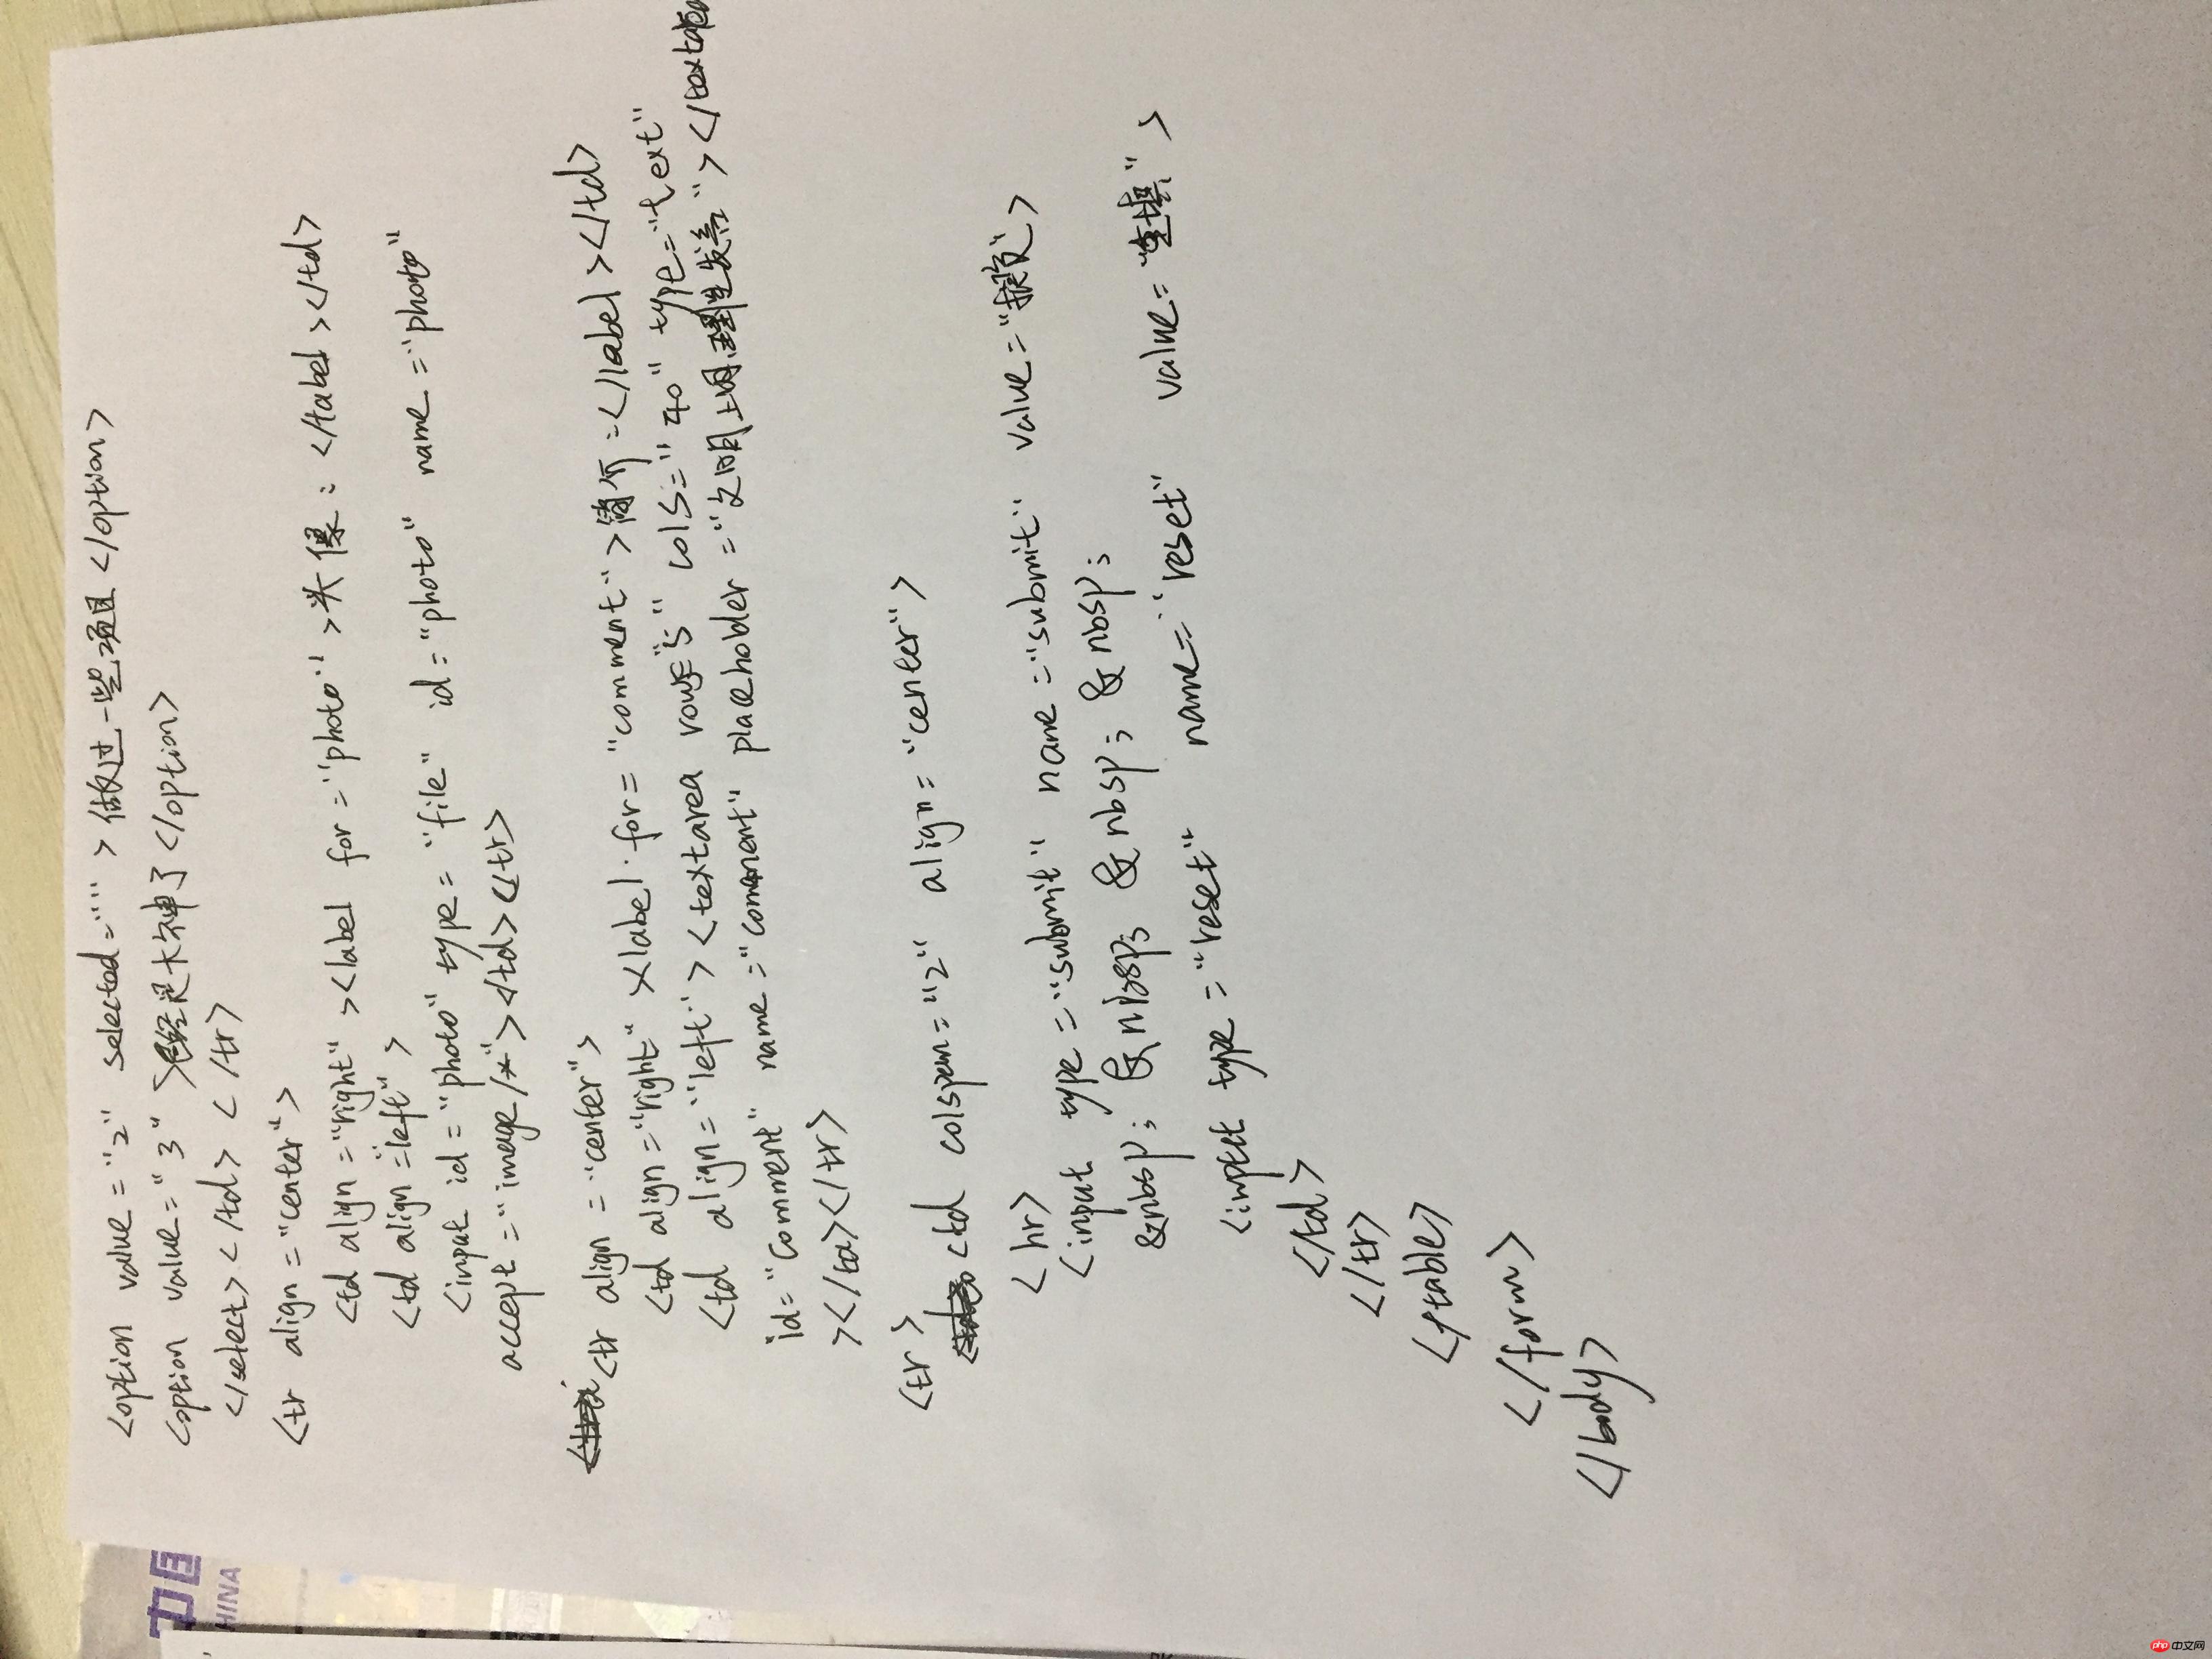 <option value="2" selected="" >做过一些项目</option>
<option value="3" >已经是大神了</option>
</select></td></tr>
<tr align="center">
<td align="right"><label for="photo">头像:</label></td>
<td align="left">
<input id="photo" type="file" id="photo" name="photo"
accept="image/*"></td></tr>
<tr align="center">
<td align="right"><label for="comment">简介:</label></td>
<td align="left"><textarea rows="5" cols="40" type="text"
id="comment" name="comment" placeholder="文明上网,理性发言"></textarea
></td></tr>
<tr>
<td colspan="2" align="center">
<hr>
<input type="submit" name="submit" value="提交">
&nbsp; &nbsp; &nbsp; &nbsp;
<input type="reset" name="reset" value="重填">
</td>
</tr>
</table>
</form>
</body>
中国
HINA
php 中文网